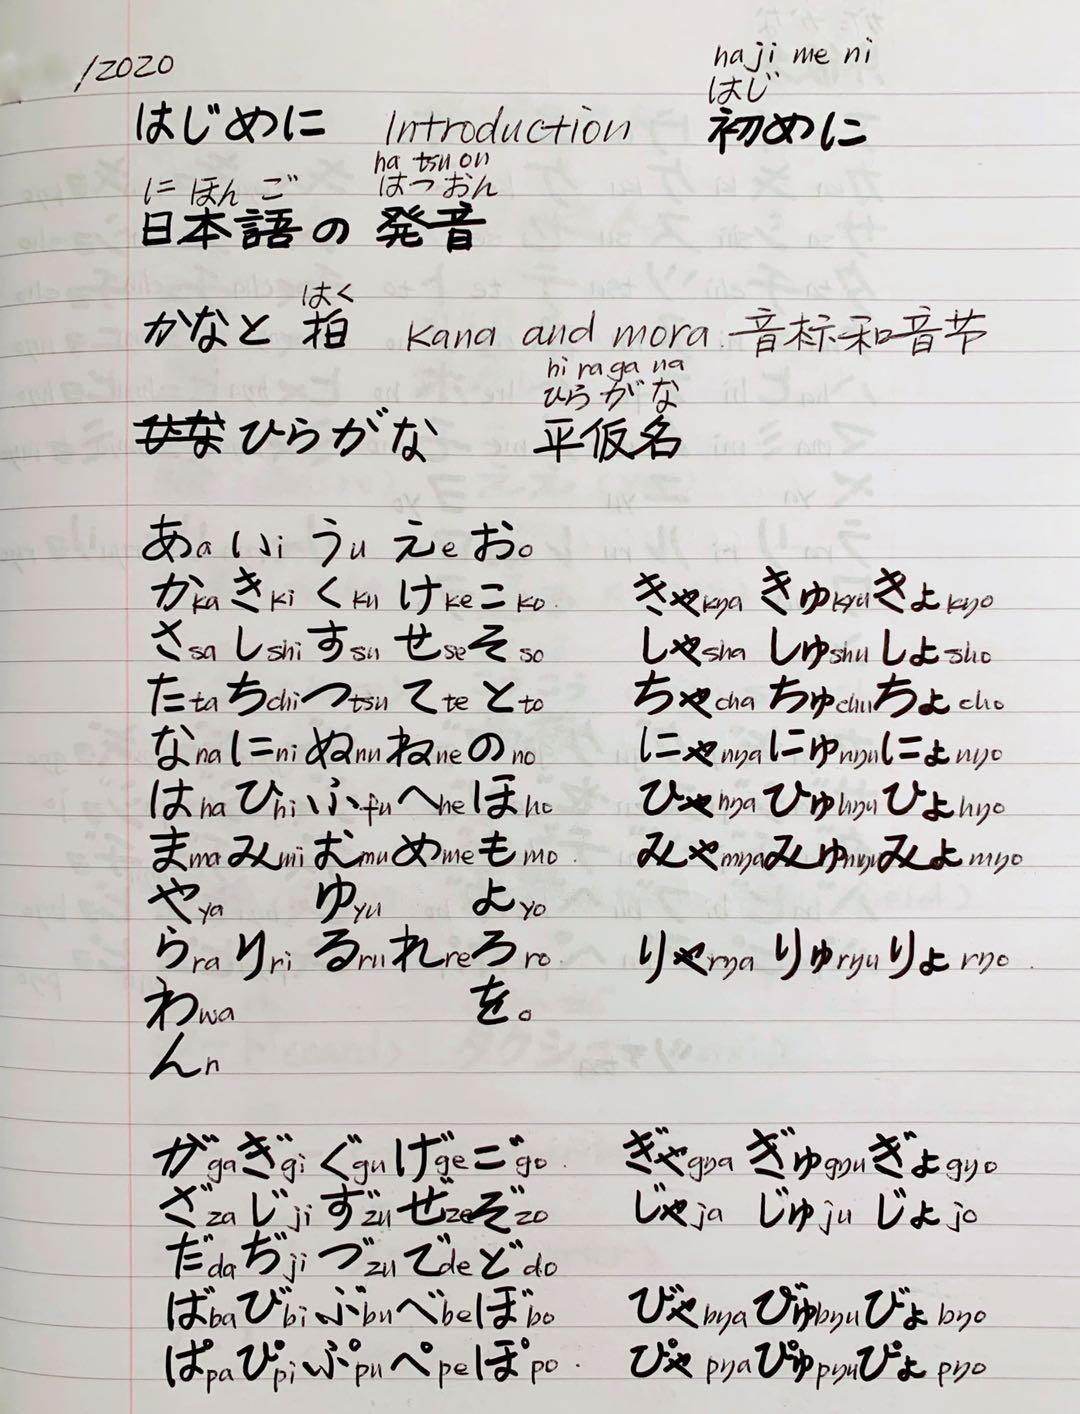 /2020
ha ji me ni
はじ
はじめに Introduction 初めに
ha tsu on
に ほん ご はつ おん
日本語の発音
はく
かなと拍 Kana and mora. 音标和音节
hi ra ga na
ひら が な
ひな ひらがな 平仮名
あa いi うu えe おo
かka きki くku けke こko. きゃkya きゅkyu きょkyo
さsa しshi すsu せse そso しゃsha しゅshu しょsho
たta ちchi つtsu てte とto ちゃcha ちゅchu ちょcho
なna にni ぬnu ねne のno にゃnya にゅnyu にょnyo
はha ひhi ふfu へhe ほho ひゃhya ひゅhyu ひょhyo
まma みmi むmu めme もmo. みゃmya みゅmyu みょmyo
やya ゆyu よyo
らra りri るru れre ろro. りゃrya りゅryu りょryo.
わwa をo
んn
がga ぎgi ぐgu げge ごgo. ぎゃgya ぎゅgyu ぎょgyo
ざza じji ずzu ぜze ぞzo じゃja じゅju じょjo
だda ぢji づzu でde どdo
ばba びbi ぶbu べbe ぼbo びゃbya びゅbyu びょbyo
ぱpa ぴpi ぷpu ぺpe ぽpo. ぴゃpya ぴゅpyu ぴょpyo